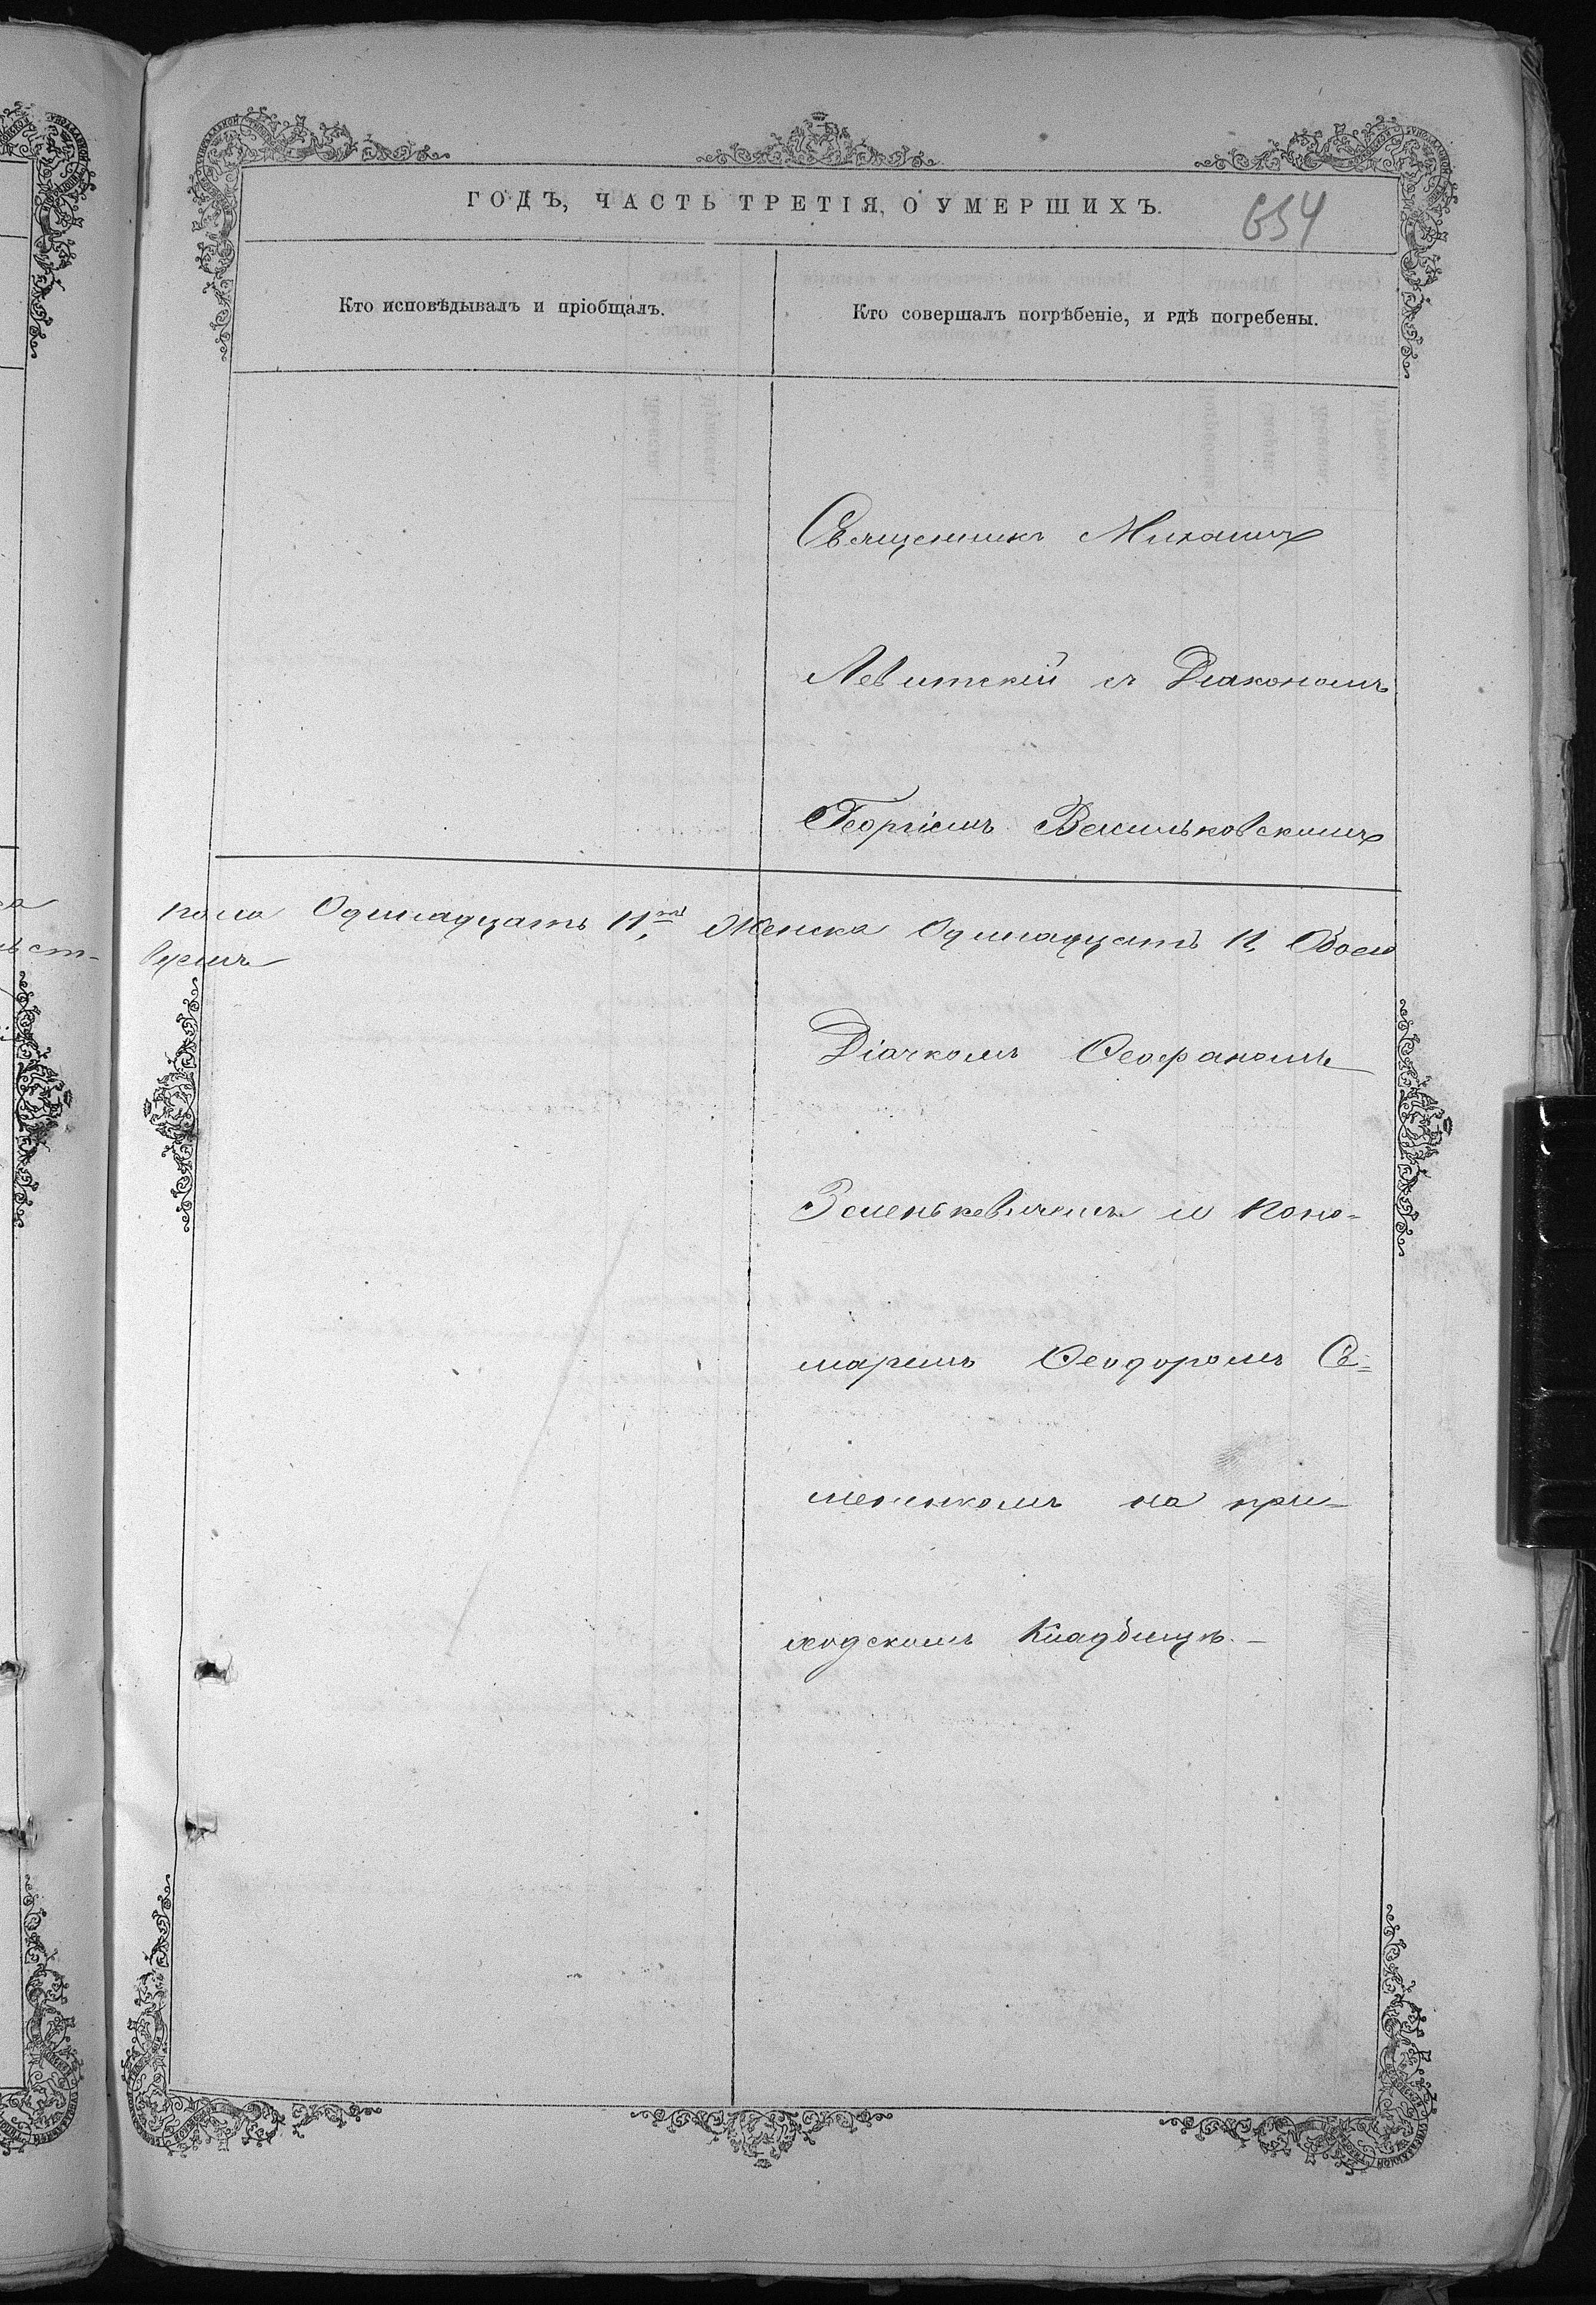 ГОДЪ, ЧАСТЬ ТРЕТІЯ, О УМЕРШИХЪ.
654
Кто исповѣдывалъ и пріобщалъ.
Кто совершалъ погрѣбеніе, и гдѣ погребены.
Священникъ Михаилъ
Левитскій съ Діакономъ
Георгіемъ Васильковскимъ
пола Одинадцать 11, Женска Одинадцать 11, Обоего
Діачкомъ Ѳеофаномъ
Зеленькевичемъ и Поно-
маремъ Ѳеодоромъ Се=
мененкомъ на при-
ходскомъ Кладбищѣ.-